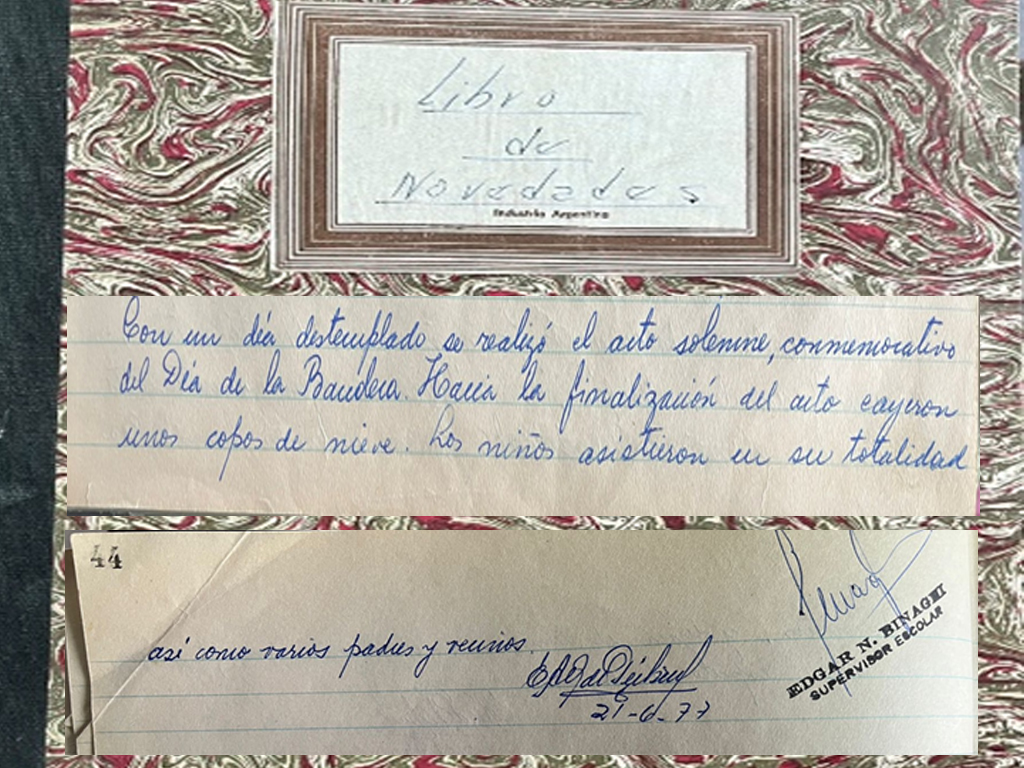 Libro
de
Novedades
Industria Argentina
Con un día destemplado se realizó el acto solemne, conmemorativo
del Día de la Bandera. Hacia la finalización del acto cayeron
unos copos de nieve. Los niños asistieron en su totalidad
44
así como varios padres y vecinos.
21-6-77
EDGAR N. BINAGHI
SUPERVISOR ESCOLAR